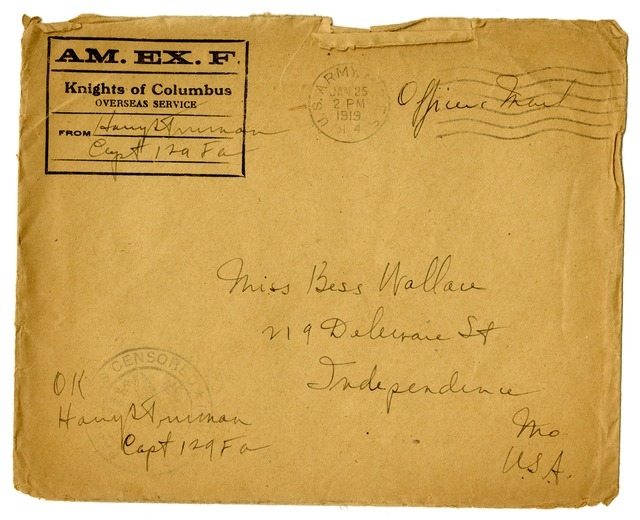 AM. EX. F.
Knights of Columbus
OVERSEAS SERVICE
FROM Harry S Truman
Capt 129 Fa
U.S. ARMY
JAN 25
2 PM
1919
Officers Mail
Miss Bess Wallace
219 Deleware St
Independence
Mo
U.S.A.
CENSORED
OK
Harry S Truman
Capt 129 Fa